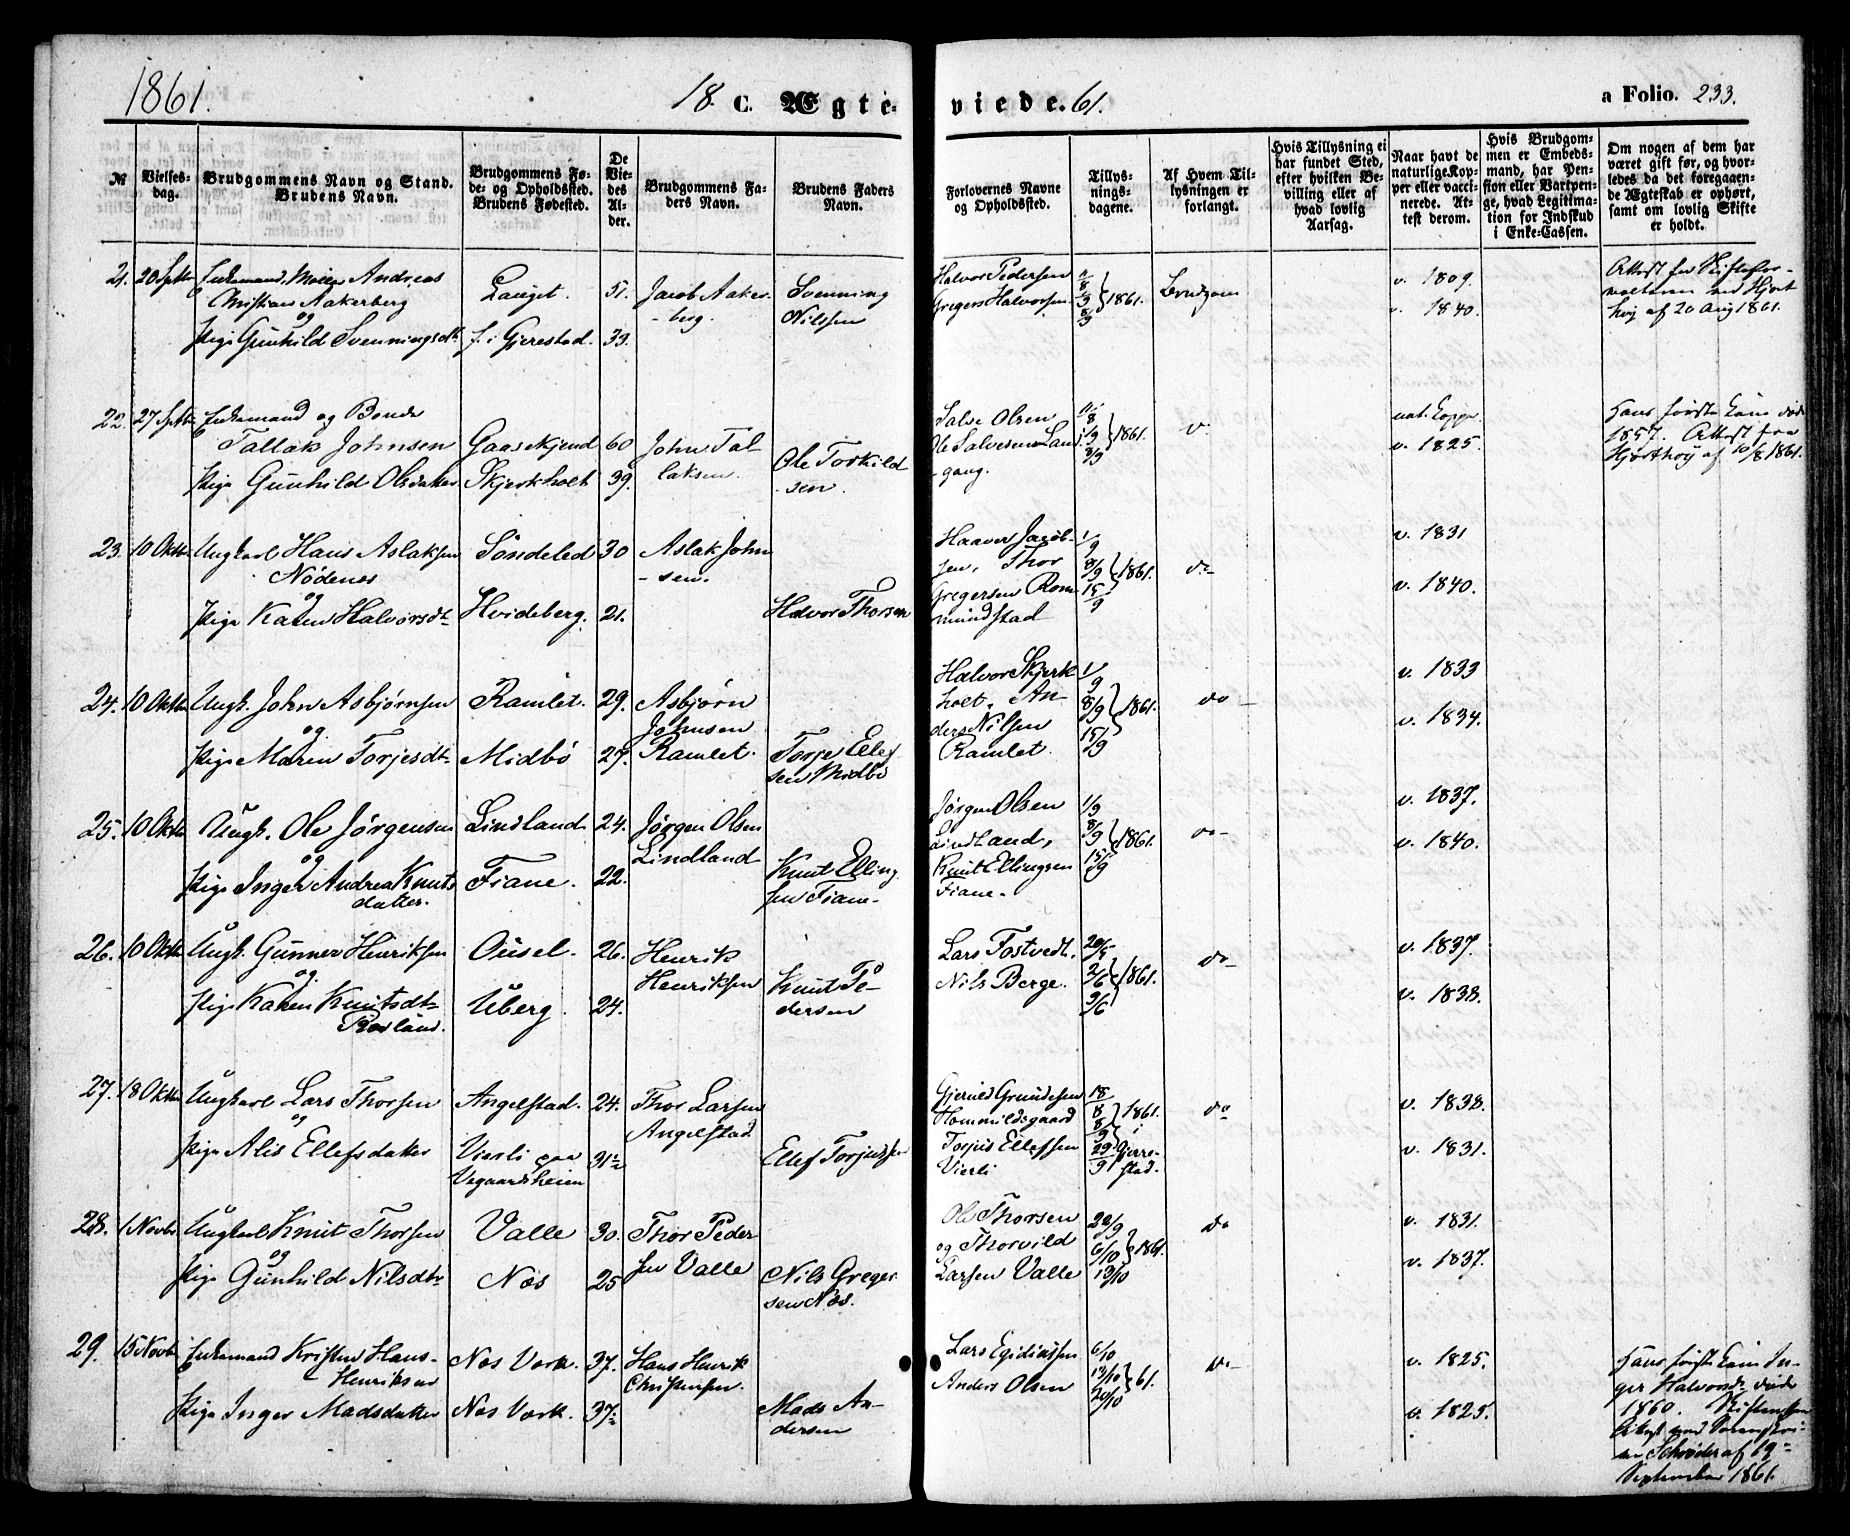 1861.
18 C. Ægte-
viede. 61.
a Folio. 233.
№
Vielses-
dag.
Brudgommens Navn og Stand.
Brudens Navn.
Brudgommens Fø-
de- og Opholdssted.
Brudens Fødested.
De
Vie-
des
Al-
der.
Brudgommens Fa-
ders Navn.
Brudens Faders
Navn.
Forlovernes Navne
og Opholdssted.
Tillys-
nings-
dagene.
Af Hvem Til-
lysningen er
forlangt.
Hvis Tillysning ei
har fundet Sted,
efter hvilken Be-
villing eller af
hvad lovlig
Aarsag.
Naar havt de
naturlige Kop-
per eller vacci-
nerede. At-
test derom.
Hvis Brudgom-
men er Embeds-
mand, har Pen-
sion eller Vartpen-
ge, hvad Legitima-
tion for Indskud
i Enke-Cassen.
Om nogen af dem har
været gift før, og hvor-
ledes da det foregaaen-
de Ægteskab er ophørt,
samt om lovlig Skifte
er holdt.
21. 20 Septbr Enkemand, Andreas
Christian Aakerberg
og
Pige Gunhild Svenningsdtr
Lauget.
f. i Gjerestad.
51.
33.
Jacob Aaker-
berg.
Svenning
Nilssen
Halvor Pedersen
Gregers Halvorsen
1861.
Brudgom
v. 1809.
v. 1840.
Attest fra Skiftefor-
valteren ved Hjort
høj af 20 Aug 1861.
22. 27 Septbr Enkemand og Bonde
Tallak Johnsen
Pige Gunhild Olsdatter
Gaaseskjend
Skjerkholt
60
39.
John Tal-
laksen.
Ole Torkild
sen.
Salve Olsen
Ole Salvesen Lan-
gang.
1861.
nat. Kopper
v. 1825.
Hans første Kone døde
1857. Attest fra
Hjorthøj af 10/8 1861.
23. 10 Oktbr Ungkarl Hans Aslaksen
Nödenes
og
Pige Karen Halvorsdtr
Söndeled
Hvideberg.
30
21.
Aslak John
-sen.
Halvor Thorsen
Haaver Jacob-
sen, Thor
Gregersen Rom
mundstad
1/9
8/9
15/9
1861.
do
v. 1831
v. 1840.
24. 10 Oktbr Ungk. John Asbjørnsen
og
Pige Maren Torjesdtr
Ramlet.
Midbö
29.
27.
Asbjørn
Johnsen
Ramlet.
Torje Ellef
sen Midbö
Halvor Skjerk
holt, An-
ders Nilsen
Ramlet.
1/9
8/9
15/9
1861.
do
v. 1833
v. 1834.
25. 10 Oktbr Ungk. Ole Jörgensen
og
Pige Inger Andrea Knuts
datter.
Lindland
Fiane.
24.
22.
Jörgen Olsen
Lindland
Knut Elling
sen Fiane
Jörgen Olsen
Lindland,
Knut Ellingsen
Fiane.
1/9
8/9
15/9
1861.
do
v. 1837.
v. 1840.
26. 10 Oktbr Ungk. Gunner Henriksen
og
Pige Karen Knutsdtr
Ousel.
Uberg.
26.
24.
Henrik
Henriksen
Knut Pe-
dersen
Lars Tostvedt.
Nils Berge.
2/6
9/6
1861.
do
v. 1837.
v. 1838.
27. 18 Oktbr Ungkarl Lars Thorsen
og
Pige Alis Ellefsdatter
Angelstad.
Vierli paa
Vegaardsheien
24.
31½
Thor Larsen
Angelstad
Ellef Torjussen
Gjeruld Grundesen
Hommildsgaard
Torjus Ellefsen
Vierli
18
8
8
9
29
9
1861.
i
Gjerre-
stad.
do
v. 1838.
v. 1831.
28. 1 Novbr Ungkarl Knut Thorsen
og
Pige Gunhild Nilsdtr
Valle
Næs
30.
25
Thor Peder
sen Valle
Nils Greger-
sen Næs.
Ole Thorsen
og Thorvild
Larsen Valle
6/10
13/10
1861.
do
v. 1831.
v. 1837.
29. 15 Novbr Enkemand Kristen Hans-
Henriksen
Pige Inger Madsdatter
Næs Værk.
Næs Værk.
37.
37.
Hans Henrik
Christensen.
Mads An-
dersen
Lars Egidiussen
Anders Olsen
6/10
13/10
20/10
61.
do
v. 1825.
v. 1825.
Hans første Kone In-
ger Halvorsdr døde
1860.
Schrøder af 19de
September 1861.